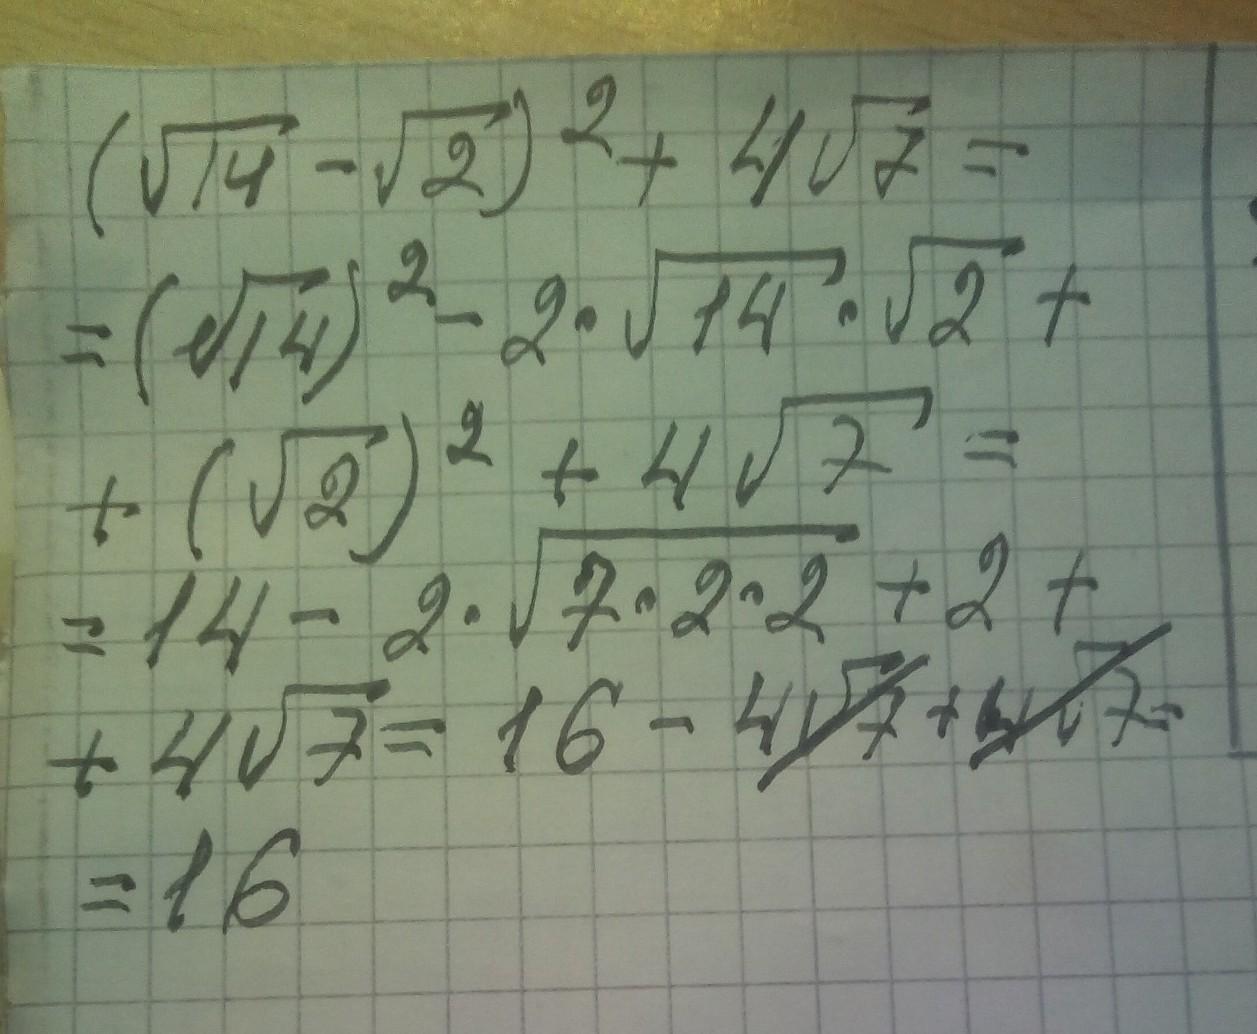 (√14 - √2)² + 4√7 =
= (√14)² - 2·√14·√2 +
+ (√2)² + 4√7 =
= 14 - 2·√7·2·2 + 2 +
+ 4√7 = 16 - 4√7 + 4√7 =
= 16